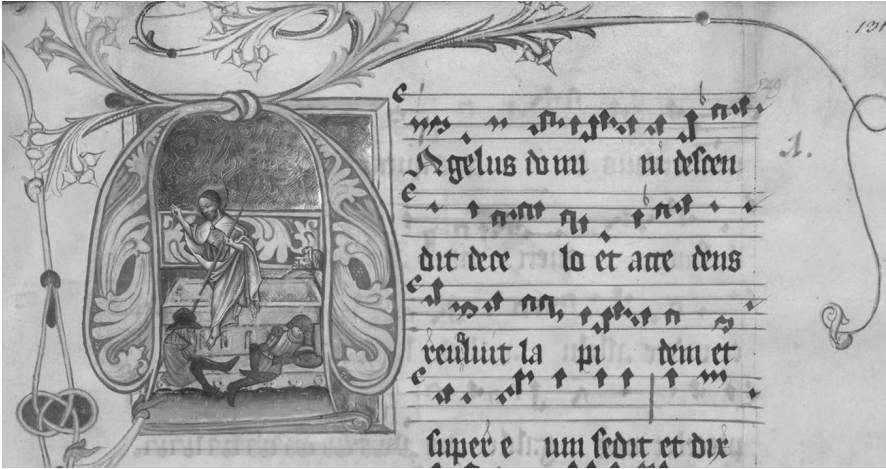 Angelus domi ni descen
dit dece lo et acce dens
reuoluit la pi dem et
super e um sedit et dix
1.